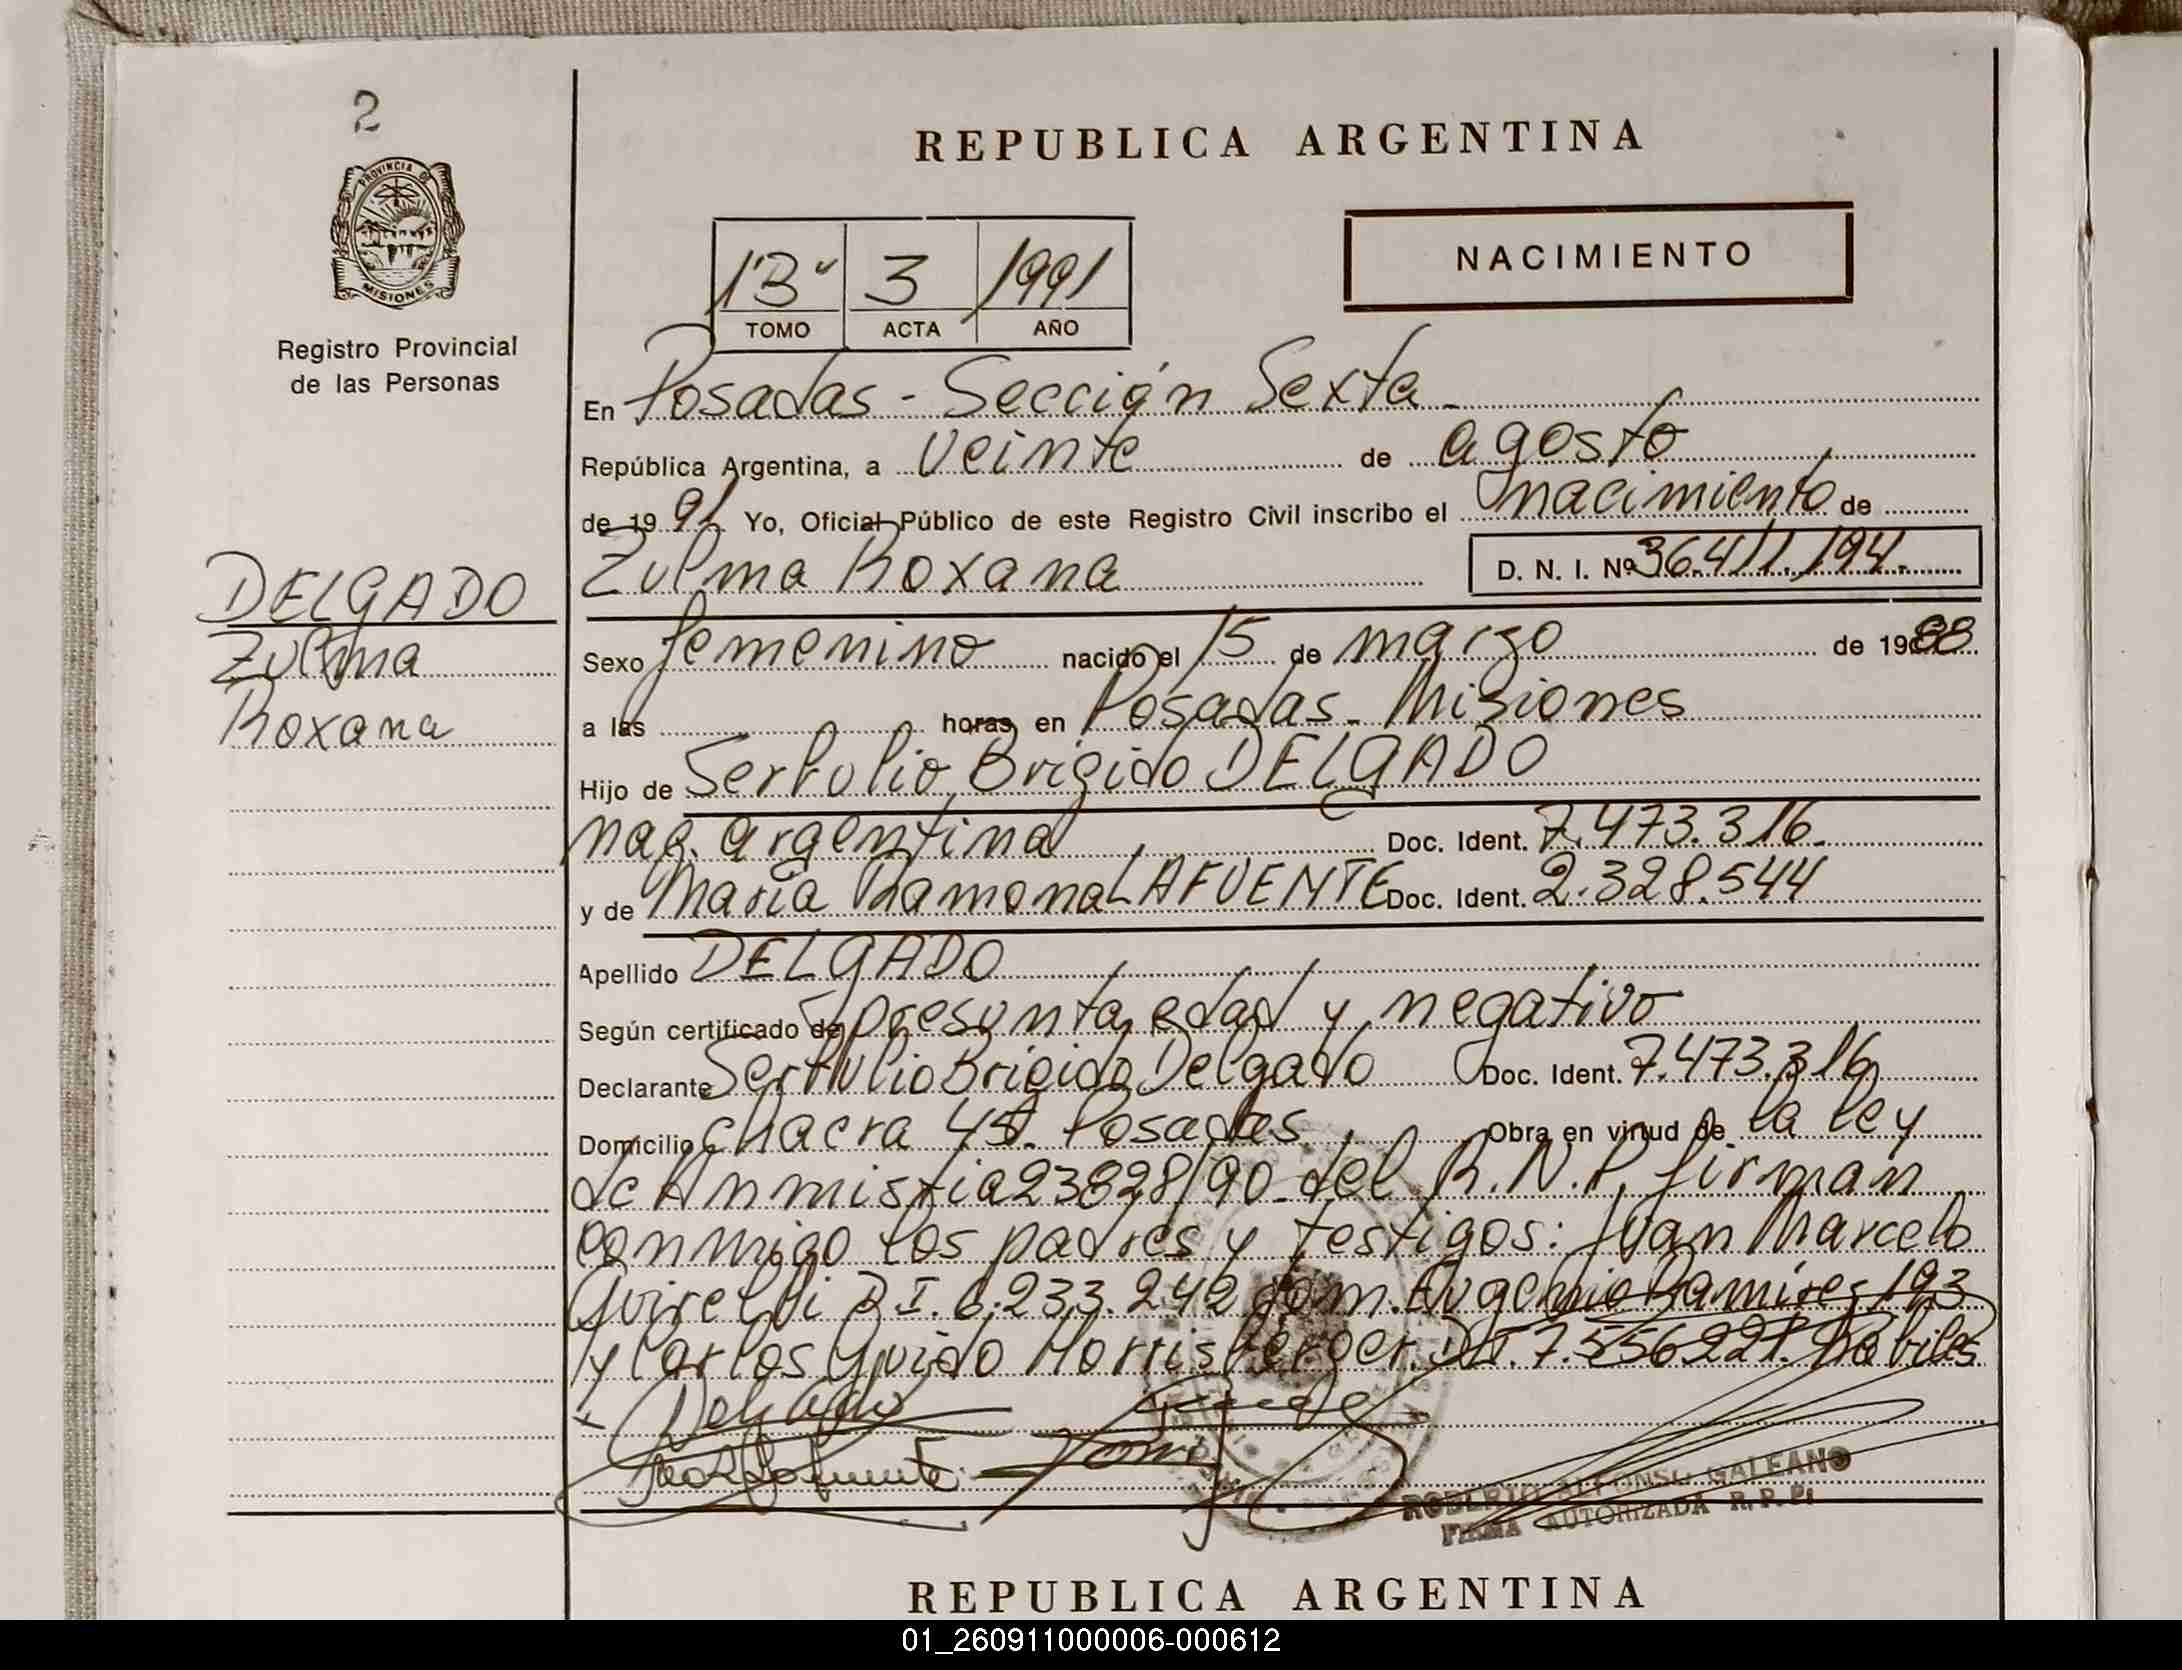 2
PROVINCIA DE
MISIONES
Registro Provincial
de las Personas
DELGADO
Zulma
Roxana
REPUBLICA ARGENTINA
NACIMIENTO
13 3 1991
TOMO ACTA AÑO
En Posadas - Sección Sexta
República Argentina, a veinte de agosto
de 1991 Yo, Oficial Público de este Registro Civil inscribo el nacimiento de
Zulma Roxana D. N. I. Nº 36.411.194.
Sexo femenino nacido el 15 de marzo de 1988
a las horas en Posadas - Misiones
Hijo de Sertulio Brigido DELGADO
nac. argentina Doc. Ident. 7.473.316.
y de Maria Ramona LAFUENTE Doc. Ident. 2.328.544
Apellido DELGADO
Según certificado de presunta edad y negativo
Declarante Sertulio Brigido Delgado Doc. Ident. 7.473.316
Domicilio chacra 45. Posadas Obra en virtud de la ley
de Anmistia 23828/90 del R.N.P. firman
conmigo los padres y testigos: Juan Marcelo
D I. 6.233.242 dom. Eugenio Ramires 193
y Carlos Guido Morrisberger. D.I. 7.556227. habiles
Delgado
Lafuente
ROBERTO ALFONSO GALEANO
FIRMA AUTORIZADA R. P. P.
REPUBLICA ARGENTINA
01_260911000006-000612